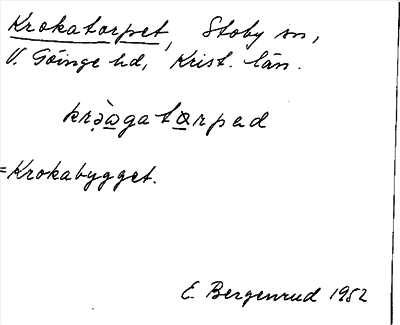 Krokatorpet, Stoby sn,
V. Göinge hd, Krist. län.
krə̀ꞷgatɷrpad
=Krokabygget.
E. Bergenrud 1952